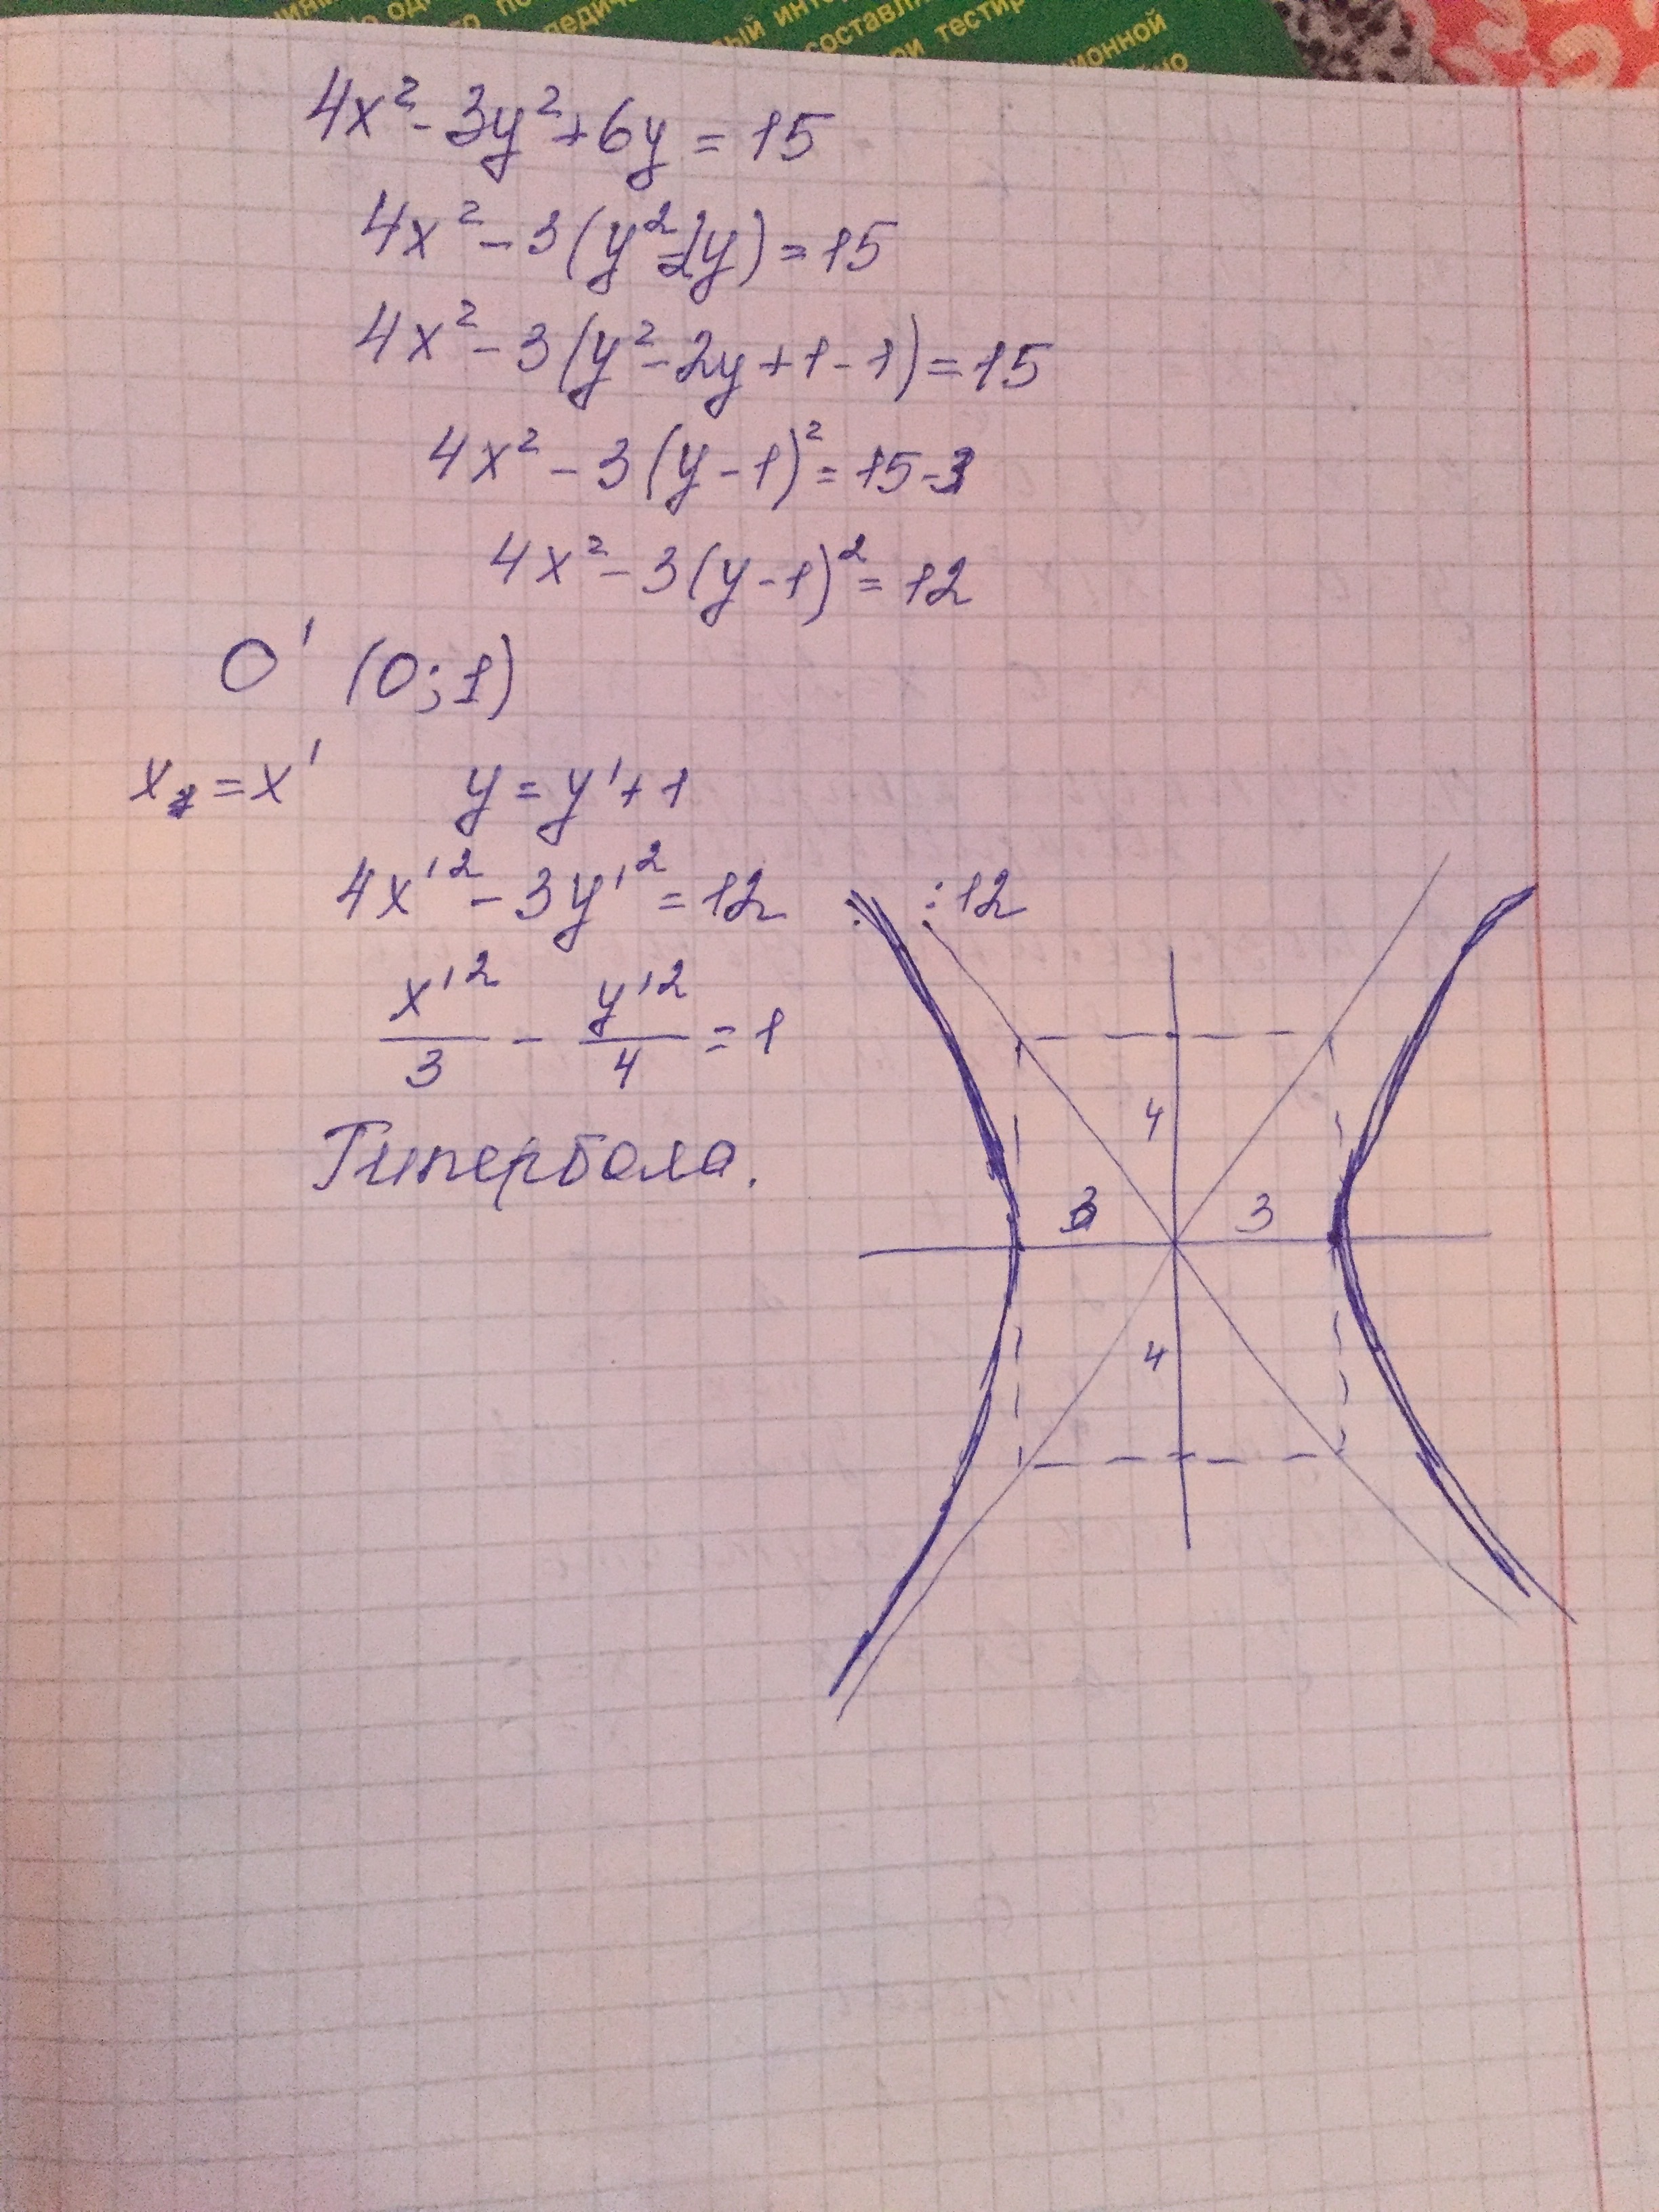 составля
тестир
ционной
4x² - 3y² + 6y = 15
4x² - 3(y² - 2y) = 15
4x² - 3(y² - 2y + 1 - 1) = 15
4x² - 3(y - 1)² = 15 - 3
4x² - 3(y - 1)² = 12
O' (0; 1)
x = x' y = y' + 1
4x'² - 3y'² = 12 : 12
x'²/3 - y'²/4 = 1
Гипербола.
4
3 3
4